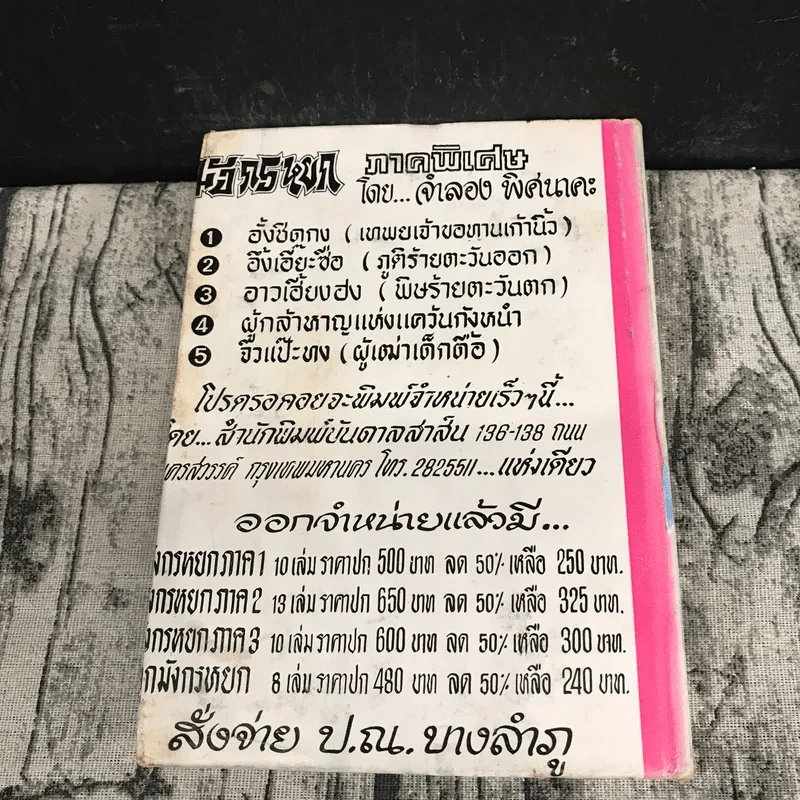 มังกรหยก ภาคพิเศษ
โดย... จำลอง พิศนาคะ
1 อั้งชิดกง ( เทพยเจ้าขอทานเก้านิ้ว )
2 อึ้งเอี๊ยะซือ ( ภูติร้ายตะวันออก )
3 อาวเฮี้ยงฮง ( พิษร้ายตะวันตก )
4 ผู้กล้าหาญแห่งแคว้นกังหนำ
5 จิวแป๊ะทง ( ผู้เฒ่าเด็กดื้อ )
โปรดรอคอยจะพิมพ์จำหน่ายเร็วๆนี้...
โดย... สำนักพิมพ์บันดาลสาส์น 136-138 ถนน
นครสวรรค์ กรุงเทพมหานคร โทร. 2825511... แห่งเดียว
ออกจำหน่ายแล้วมี...
งกรหยกภาค 1 10 เล่ม ราคาปก 500 บาท ลด 50% เหลือ 250 บาท.
งกรหยกภาค 2 13 เล่ม ราคาปก 650 บาท ลด 50% เหลือ 325 บาท.
งกรหยกภาค 3 10 เล่ม ราคาปก 600 บาท ลด 50% เหลือ 300 บาท.
กมังกรหยก 8 เล่ม ราคาปก 480 บาท ลด 50% เหลือ 240 บาท.
สั่งจ่าย ป.ณ. บางลำภู